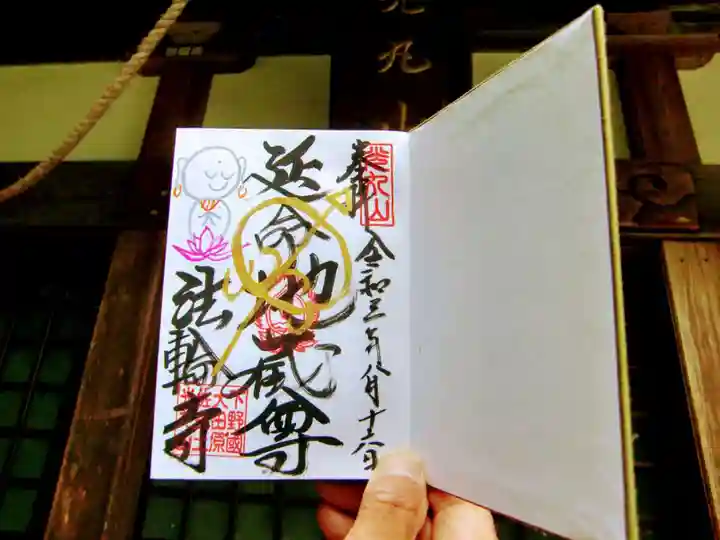 光丸山
奉拝
光丸山
令和三年八月十六日
延命地蔵尊
法輪寺
下野國
大田原
佐